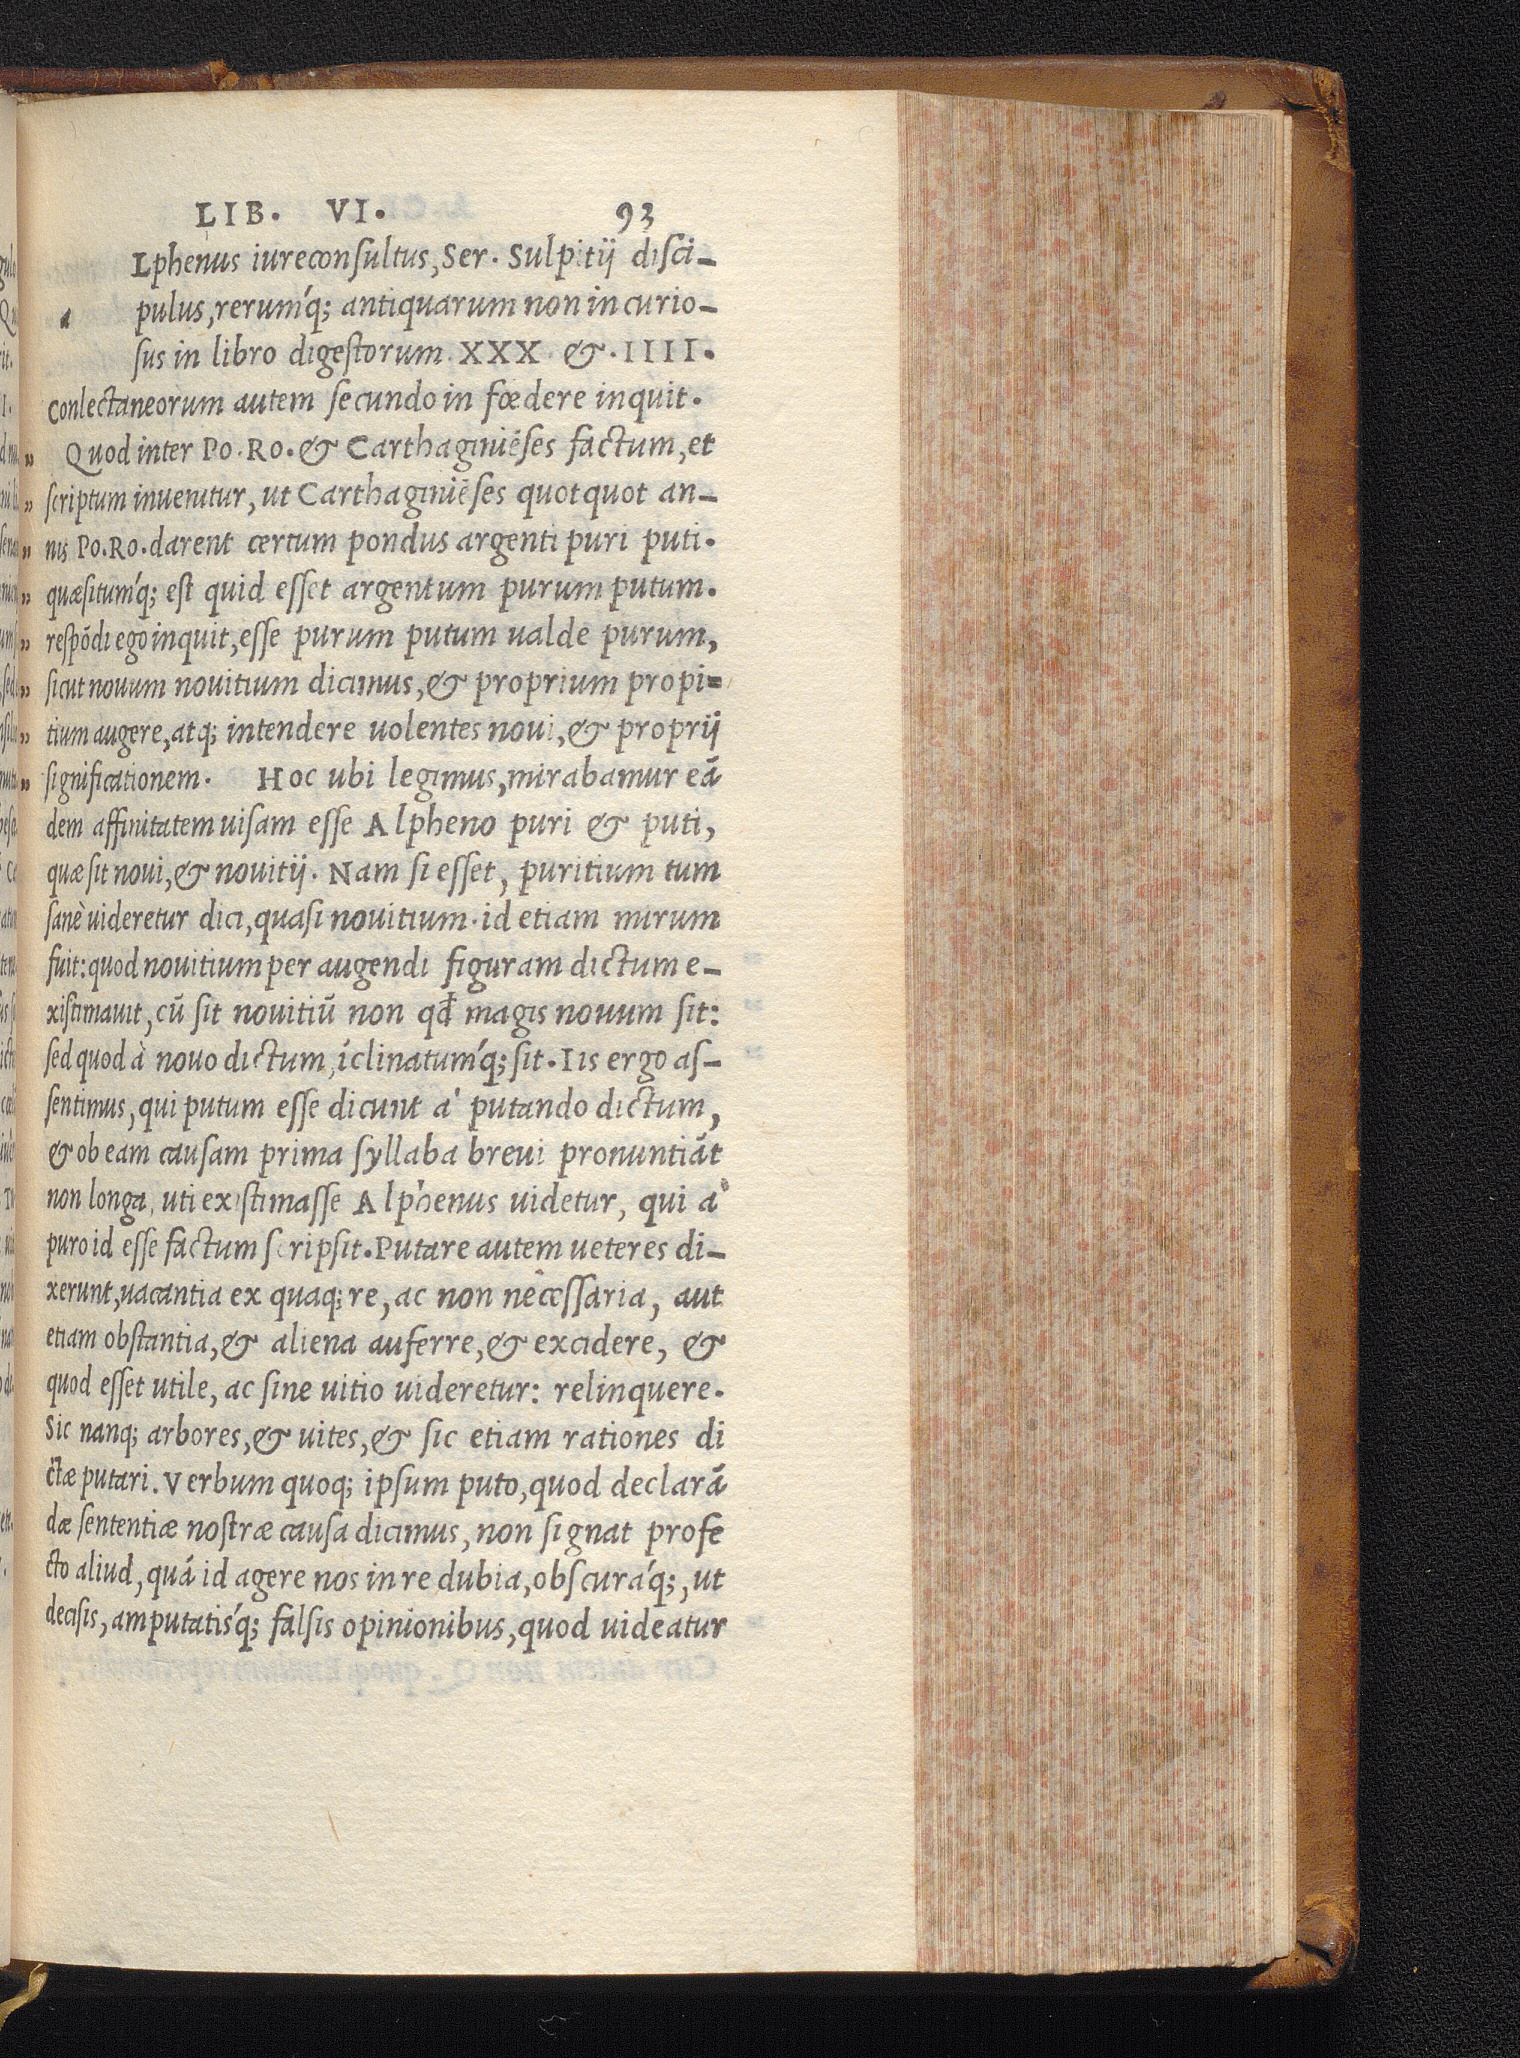 LIB. VI. 93
Lphenus iureconſultus, Ser. Sulpitij diſci-
a pulus, rerumq́; antiquarum non incurio-
ſus in libro digeſtorum XXX & .IIII.
Conlectaneorum autem ſecundo in fœdere inquit.
„ Quod inter Po. Ro. & Carthaginiẽſes factum, et
„ ſcriptum inuenitur, ut Carthaginiẽſes quotquot an-
„ nis Po. Ro. darent certum pondus argenti puri puti.
„ quæſitumq́; eſt quid eſſet argentum purum putum.
„ reſpõdi ego inquit, eſſe purum putum ualde purum,
„ ſicut nouum nouitium dicimus, & proprium propi=
„ tium augere, atq; intendere uolentes noui, & proprij
„ ſignificationem. Hoc ubi legimus, mirabamur eã
dem affinitatem uiſam eſſe Alpheno puri & puti,
quæ ſit noui, & nouitij. Nam ſi eſſet, puritium tum
ſanè uideretur dici, quaſi nouitium. id etiam mirum
fuit: quod nouitium per augendi figuram dictum e-
xiſtimauit, cũ ſit nouitiũ non qđ magis nouum ſit:
ſed quod à nouo dictum, ĩclinatumq́; ſit. Iis ergo aſ-
ſentimus, qui putum eſſe dicunt à putando dictum,
& ob eam cauſam prima ſyllaba breui pronuntiãt
non longa, uti exiſtimaſſe Alphenus uidetur, qui à
puro id eſſe factum ſcripſit. Putare autem ueteres di-
xerunt, uacantia ex quaq; re, ac non neceſſaria, aut
etiam obſtantia, & aliena auferre, & excidere, &
quod eſſet utile, ac ſine uitio uideretur: relinquere.
Sic nanq; arbores, & uites, & ſic etiam rationes di
ctæ putari. Verbum quoq; ipſum puto, quod declarã
dæ ſententiæ noſtræ cauſa dicimus, non ſignat profe
cto aliud, quã id agere nos in re dubia, obſcuraq́;, ut
deciſis, amputatiſq́; falſis opinionibus, quod uideatur